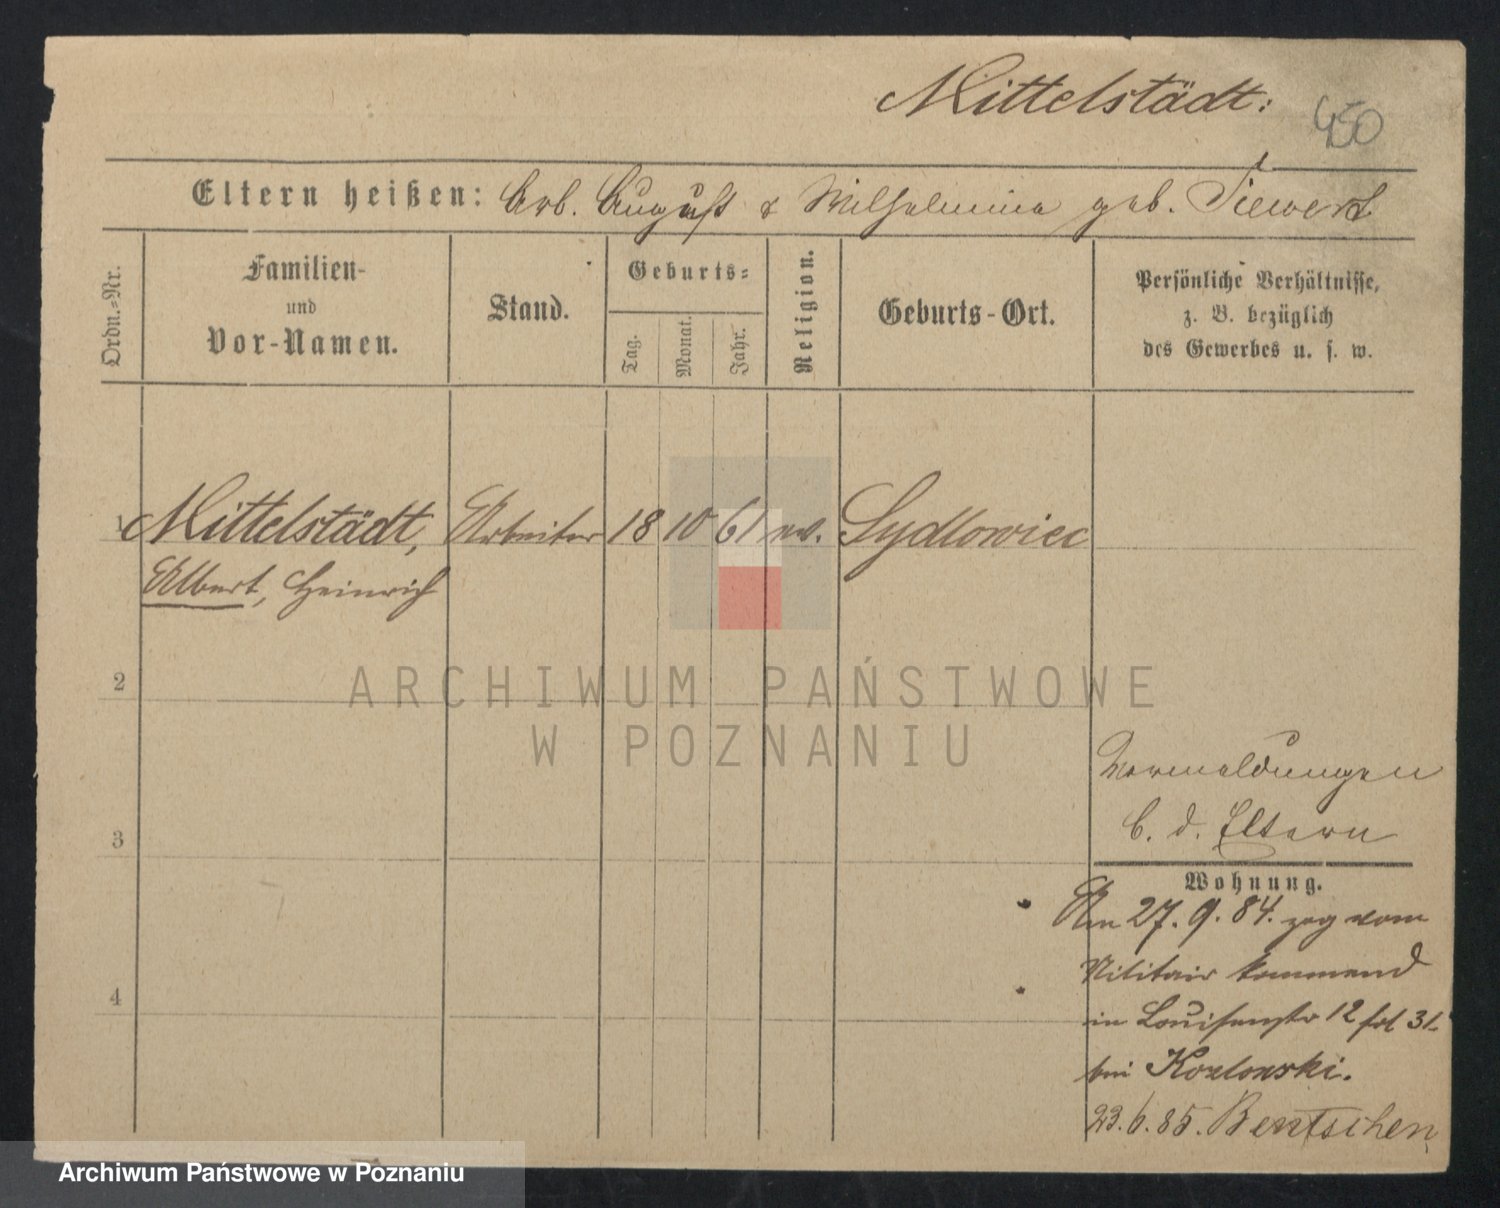 Mittelstädt:
450
Eltern heißen: Arb. August & Wilhelmine geb. Siewert
Ordn.-Nr.
Familien-
und
Vor-Namen.
Stand.
Geburts-
Tag.
Monat.
Jahr.
Religion.
Geburts-Ort.
Persönliche Verhältnisse,
z. B. bezüglich
des Gewerbes u. s. w.
1 Mittelstädt, Arbeiter 18 10 61 ev. Sydlowiec
Albert, Heinrich
2
ARCHIWUM PAŃSTWOWE
W POZNANIU
Vormeldungen
b. d. Eltern
3
Wohnung.
Am 27. 9. 84. zog vom
Militair kommend
4
in Louisenstr 12 fol 31
bei Kozlowski.
23. 6. 85. Bentschen
Archiwum Państwowe w Poznaniu